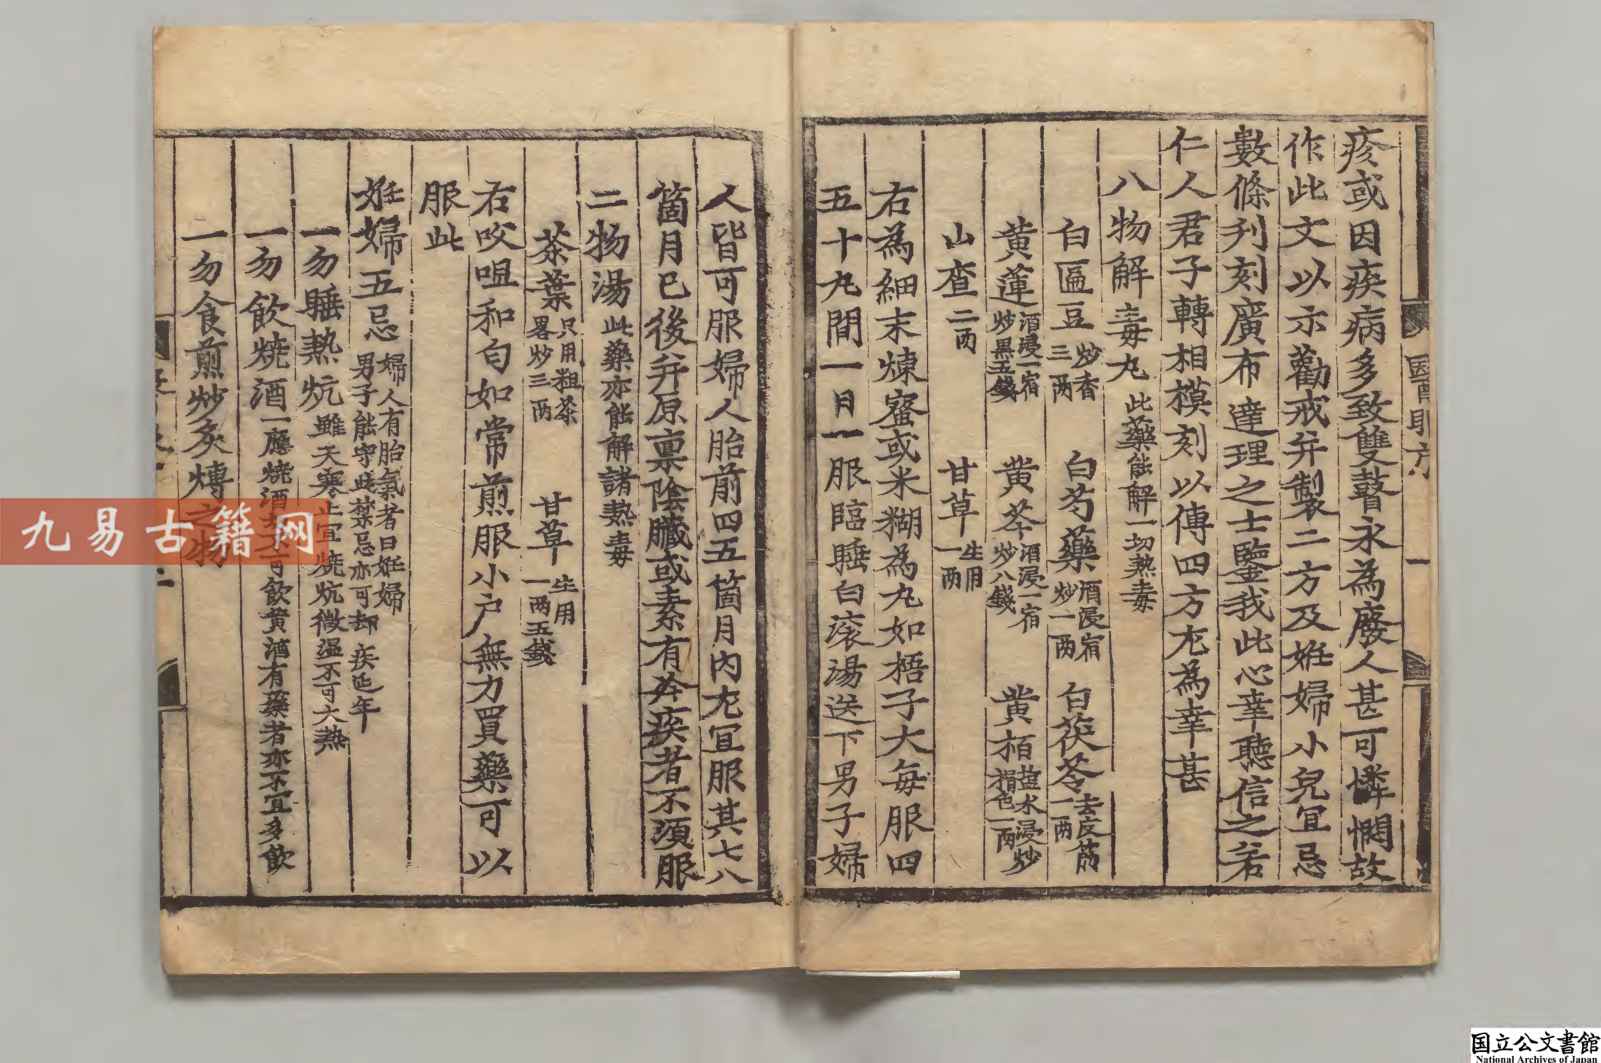 疹或因疾病多致雙瞽永為廢人甚可憐憫故
作此文以示勸戒并製二方及姙婦小兒宜忌
數條刋刻廣布達理之士鑒我此心幸聽信之若
仁人君子轉相模刻以傳四方尤為幸甚
八物解毒丸此藥能解一切熱毒
白匾豆炒香三两 白芍藥酒浸一宿炒一两 白茯苓去皮筋一两
黄蓮酒浸一宿炒黒五錢 黄芩酒浸一宿炒八錢 黄栢盐水浸炒褐色一两
山查二两 甘草生用一两
右為細末煉蜜或米糊為丸如梧子大每服四
五十丸間一月一服臨睡白滚湯送下男子婦
人皆可服婦人胎前四五箇月内尤宜服其七八
箇月已後并原禀陰臓或素有冷疾者不須服
二物湯此藥亦能解諸熱毒
茶葉只用粗茶畧炒三两 甘草生用一两五錢
右㕮咀和匀如常煎服小户無力買藥可以
服此
姙婦五忌婦人有胎氣者曰姙婦男子能守此禁忌亦可却疾延年
一勿睡熱炕雖天寒止宜燒炕微温不可大熱
一勿飲燒酒一應燒酒不可飲黄酒有藥者亦不宜多飲
一勿食煎炒炙煿之物
醫眼方
一
九易古籍网
国立公文書館
National Archives of Japan